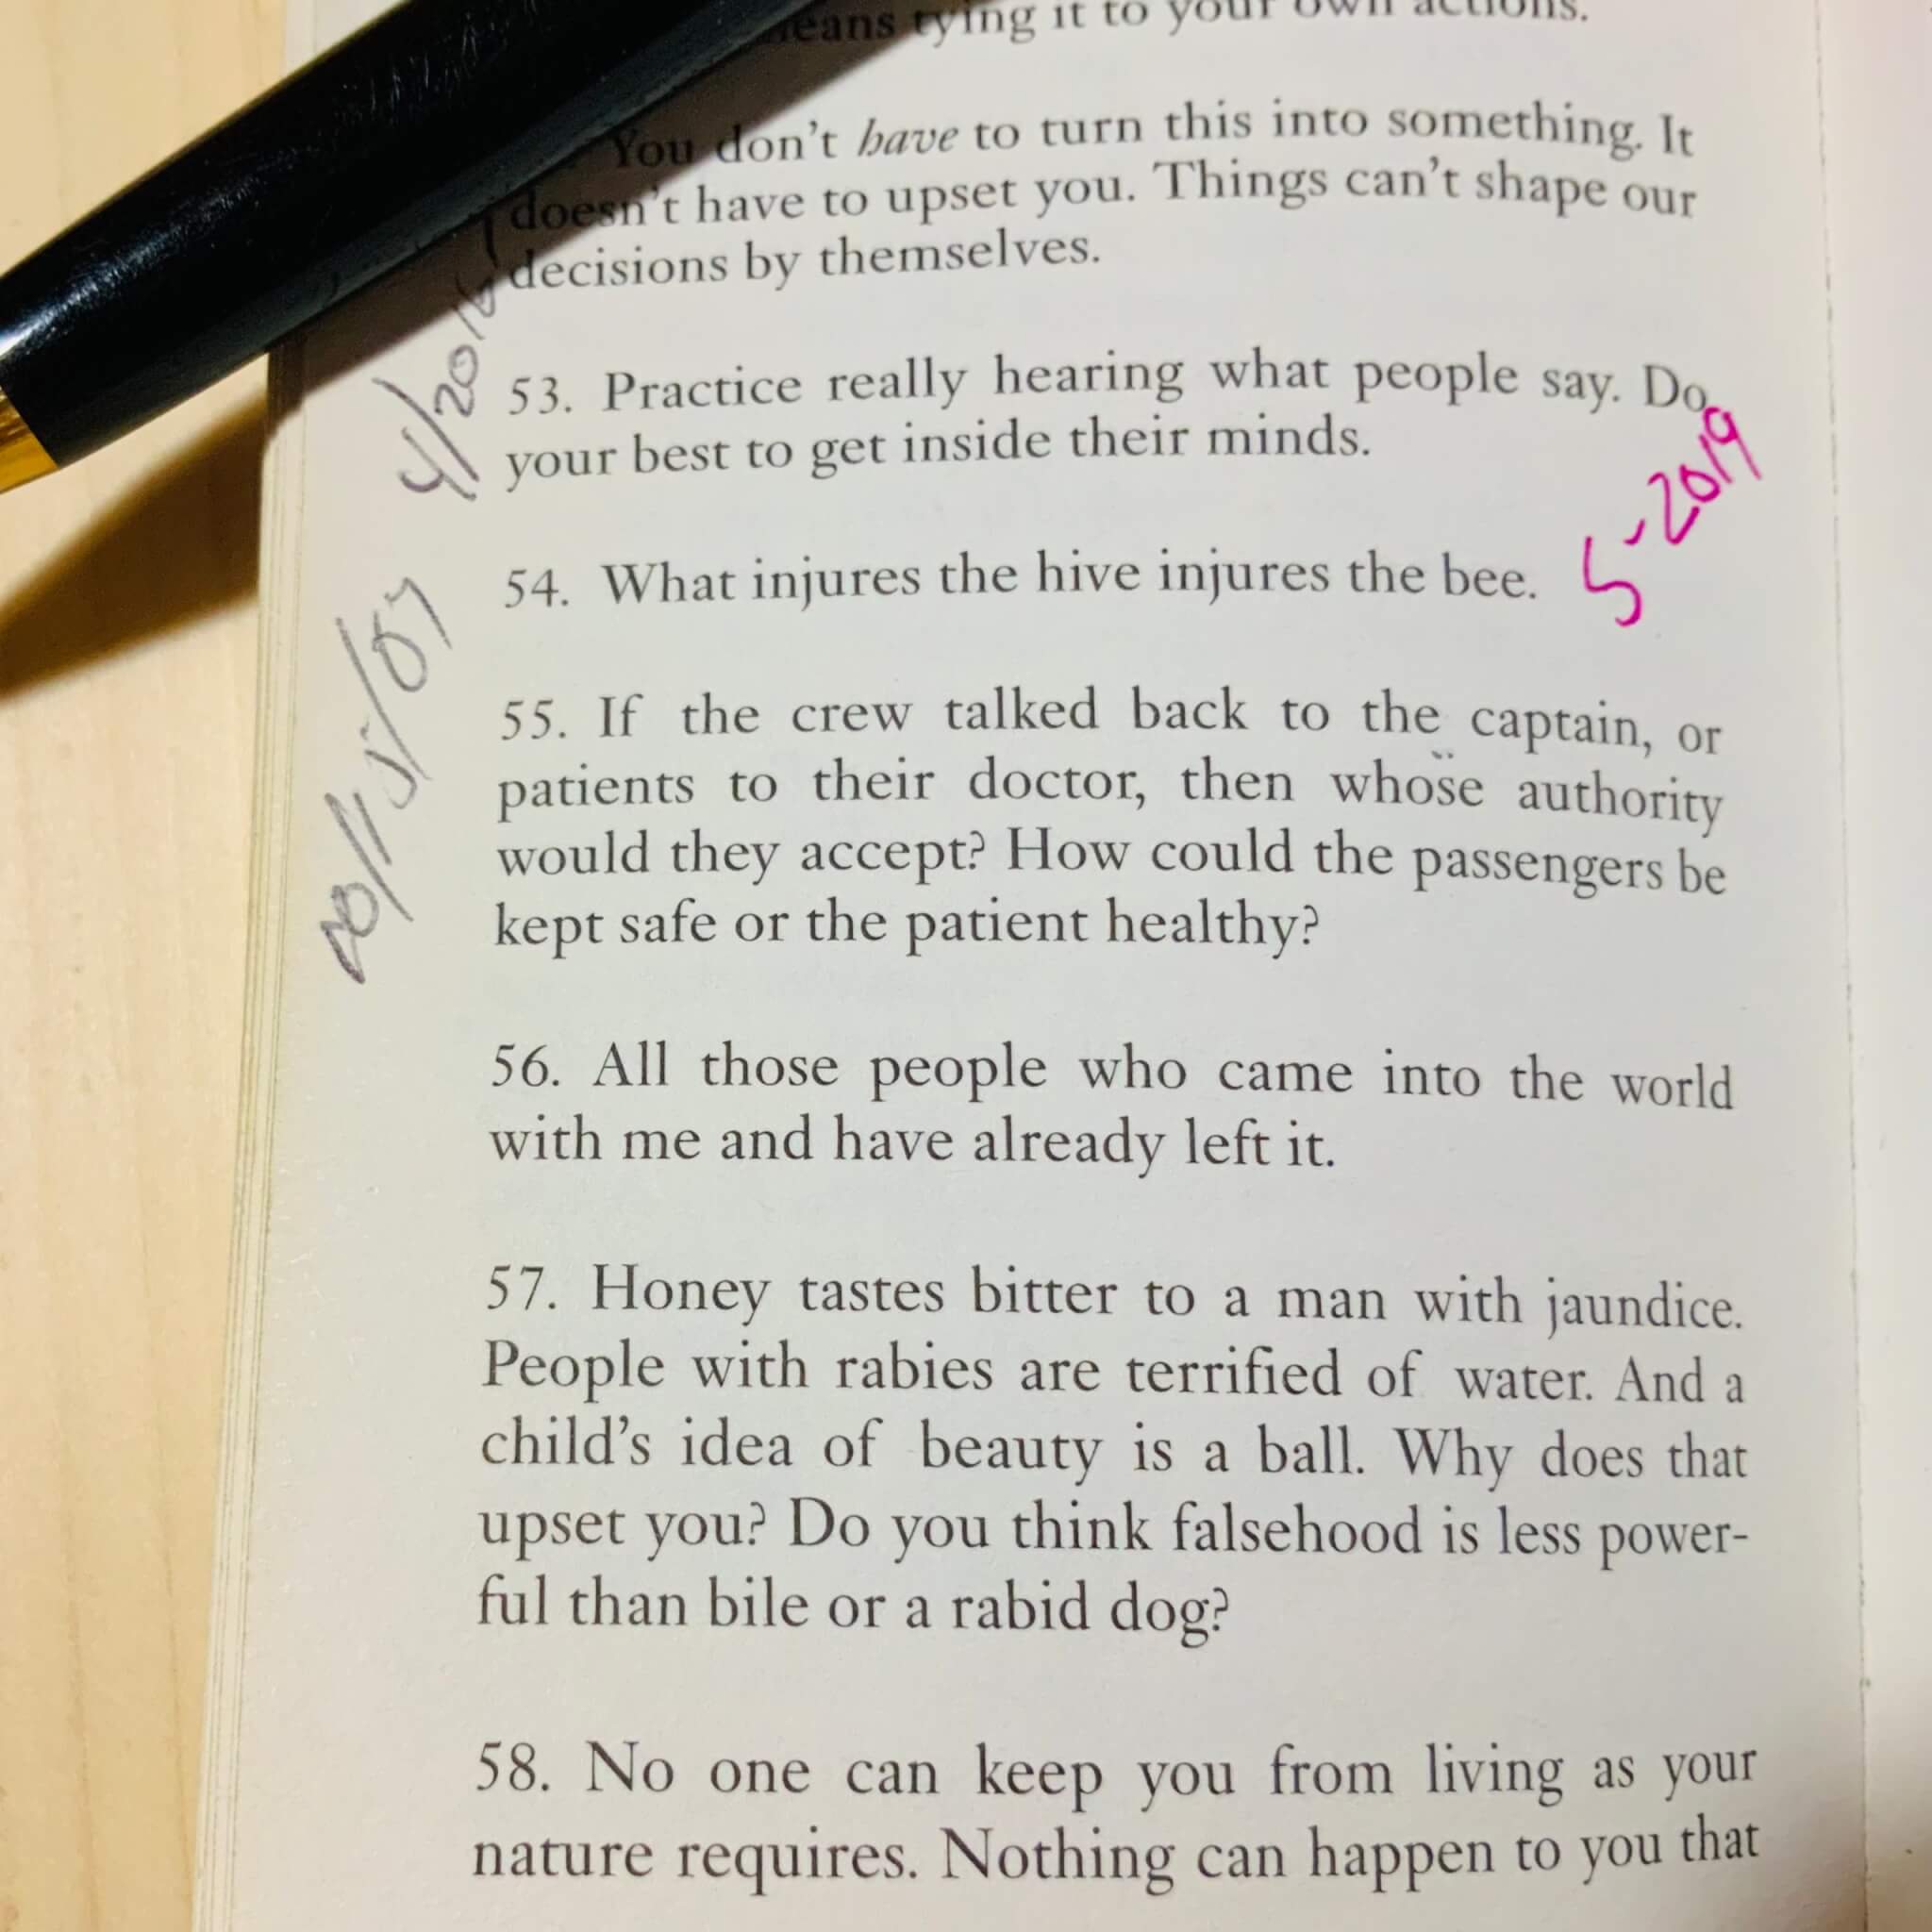 tying it to your own actions.
You don't have to turn this into something. It
doesn't have to upset you. Things can't shape our
decisions by themselves.
53. Practice really hearing what people say. Do
your best to get inside their minds.
5-2019
54. What injures the hive injures the bee.
55. If the crew talked back to the captain, or
patients to their doctor, then whose authority
would they accept? How could the passengers be
kept safe or the patient healthy?
56. All those people who came into the world
with me and have already left it.
57. Honey tastes bitter to a man with jaundice.
People with rabies are terrified of water. And a
child's idea of beauty is a ball. Why does that
upset you? Do you think falsehood is less power-
ful than bile or a rabid dog?
58. No one can keep you from living as your
nature requires. Nothing can happen to you that